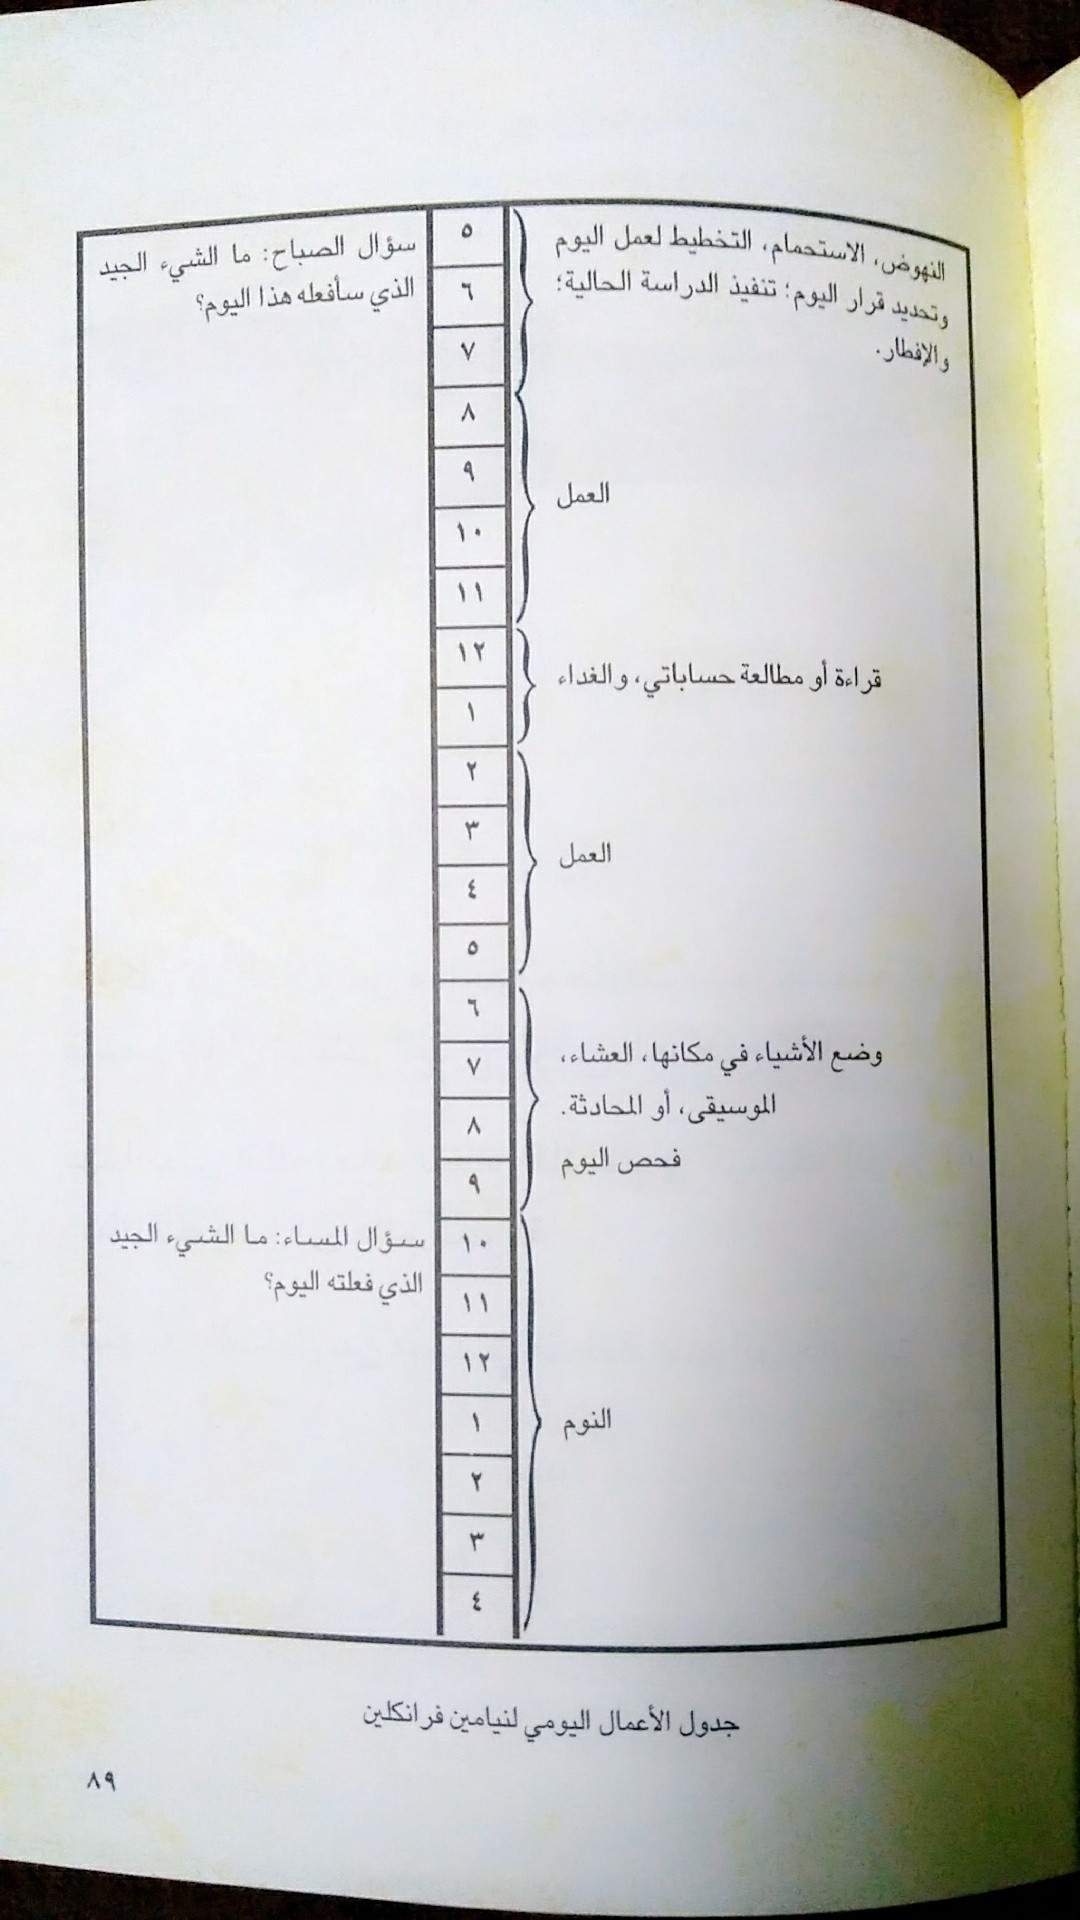 النهوض، الاستحمام، التخطيط لعمل اليوم
وتحديد قرار اليوم؛ تنفيذ الدراسة الحالية؛
والإفطار.
العمل
قراءة أو مطالعة حساباتي، والغداء
العمل
وضع الأشياء في مكانها، العشاء،
الموسيقى، أو المحادثة.
فحص اليوم
النوم
٥
٦
٧
٨
٩
١٠
١١
١٢
١
٢
٣
٤
٥
٦
٧
٨
٩
١٠
١١
١٢
١
٢
٣
٤
سؤال الصباح: ما الشيء الجيد
الذي سأفعله هذا اليوم؟
سؤال المساء: ما الشيء الجيد
الذي فعلته اليوم؟
جدول الأعمال اليومي لنيامين فرانكلين
٨٩